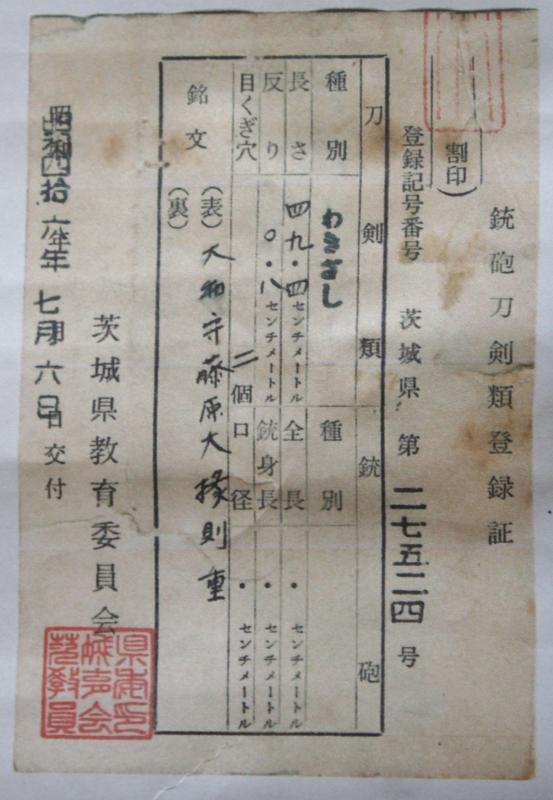 銃砲刀剣類登録証
(割印)
登録記号番号 茨城県 第 二七五二四 号
刀剣類 銃砲
種別 わきざし 種別
長さ 四九・四センチメートル 全長 ・センチメートル
反り 〇・八センチメートル 銃身長 ・センチメートル
目くぎ穴 二個 口径 ・センチメートル
銘文 (表) 大和守藤原大掾則重
(裏)
茨城県教育委員会
昭和四拾六年 七月 六日 交付